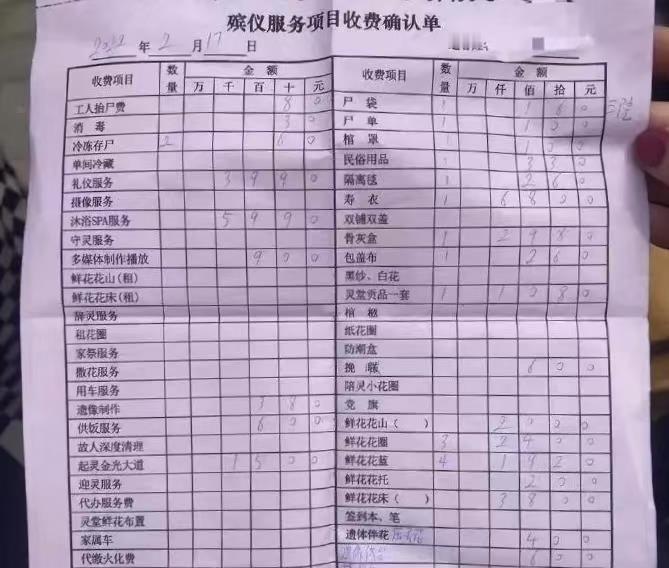 殡仪服务项目收费确认单
年 2 月 17 日
收费项目 数量 金额 万 千 百 十 元 收费项目 数量 金额 万 仟 佰 拾 元
工人抬尸费 8 0 尸袋 1 1 6 0
消毒 3 0 尸单 1 1 0 0
冷冻存尸 2 6 0 棺罩 1 1 0 0
单间冷藏 民俗用品 1 3 3 0
礼仪服务 3 9 9 0 隔离毯 1 2 6 0
摄像服务 寿衣 1 6 8 0 0
沐浴SPA服务 5 9 9 0 双铺双盖
守灵服务 骨灰盒 1 2 9 8 0
多媒体制作播放 9 0 0 包盖布 1 2 6 0
鲜花花山(租) 黑纱、白花
鲜花花床(租) 灵堂贡品一套 1 1 0 8 0
辞灵服务 棺柩
租花圈 纸花圈
家祭服务 防潮盒
撒花服务 挽联 6 0 0
用车服务 陪灵小花圈
遗像制作 3 8 0 党旗
供饭服务 6 0 0 鲜花花山( ) 2 0 0 0
故人深度清理 鲜花花圈 3 2 4 0 0
起灵金光大道 1 5 0 0 鲜花花篮 4 1 9 2 0
迎灵服务 鲜花花托 2 0 0
代办服务费 鲜花花床( ) 3 8 0 0
灵堂鲜花布置 签到本、笔
家属车 遗体伴花 4 0 0
代缴火化费 6 0 0